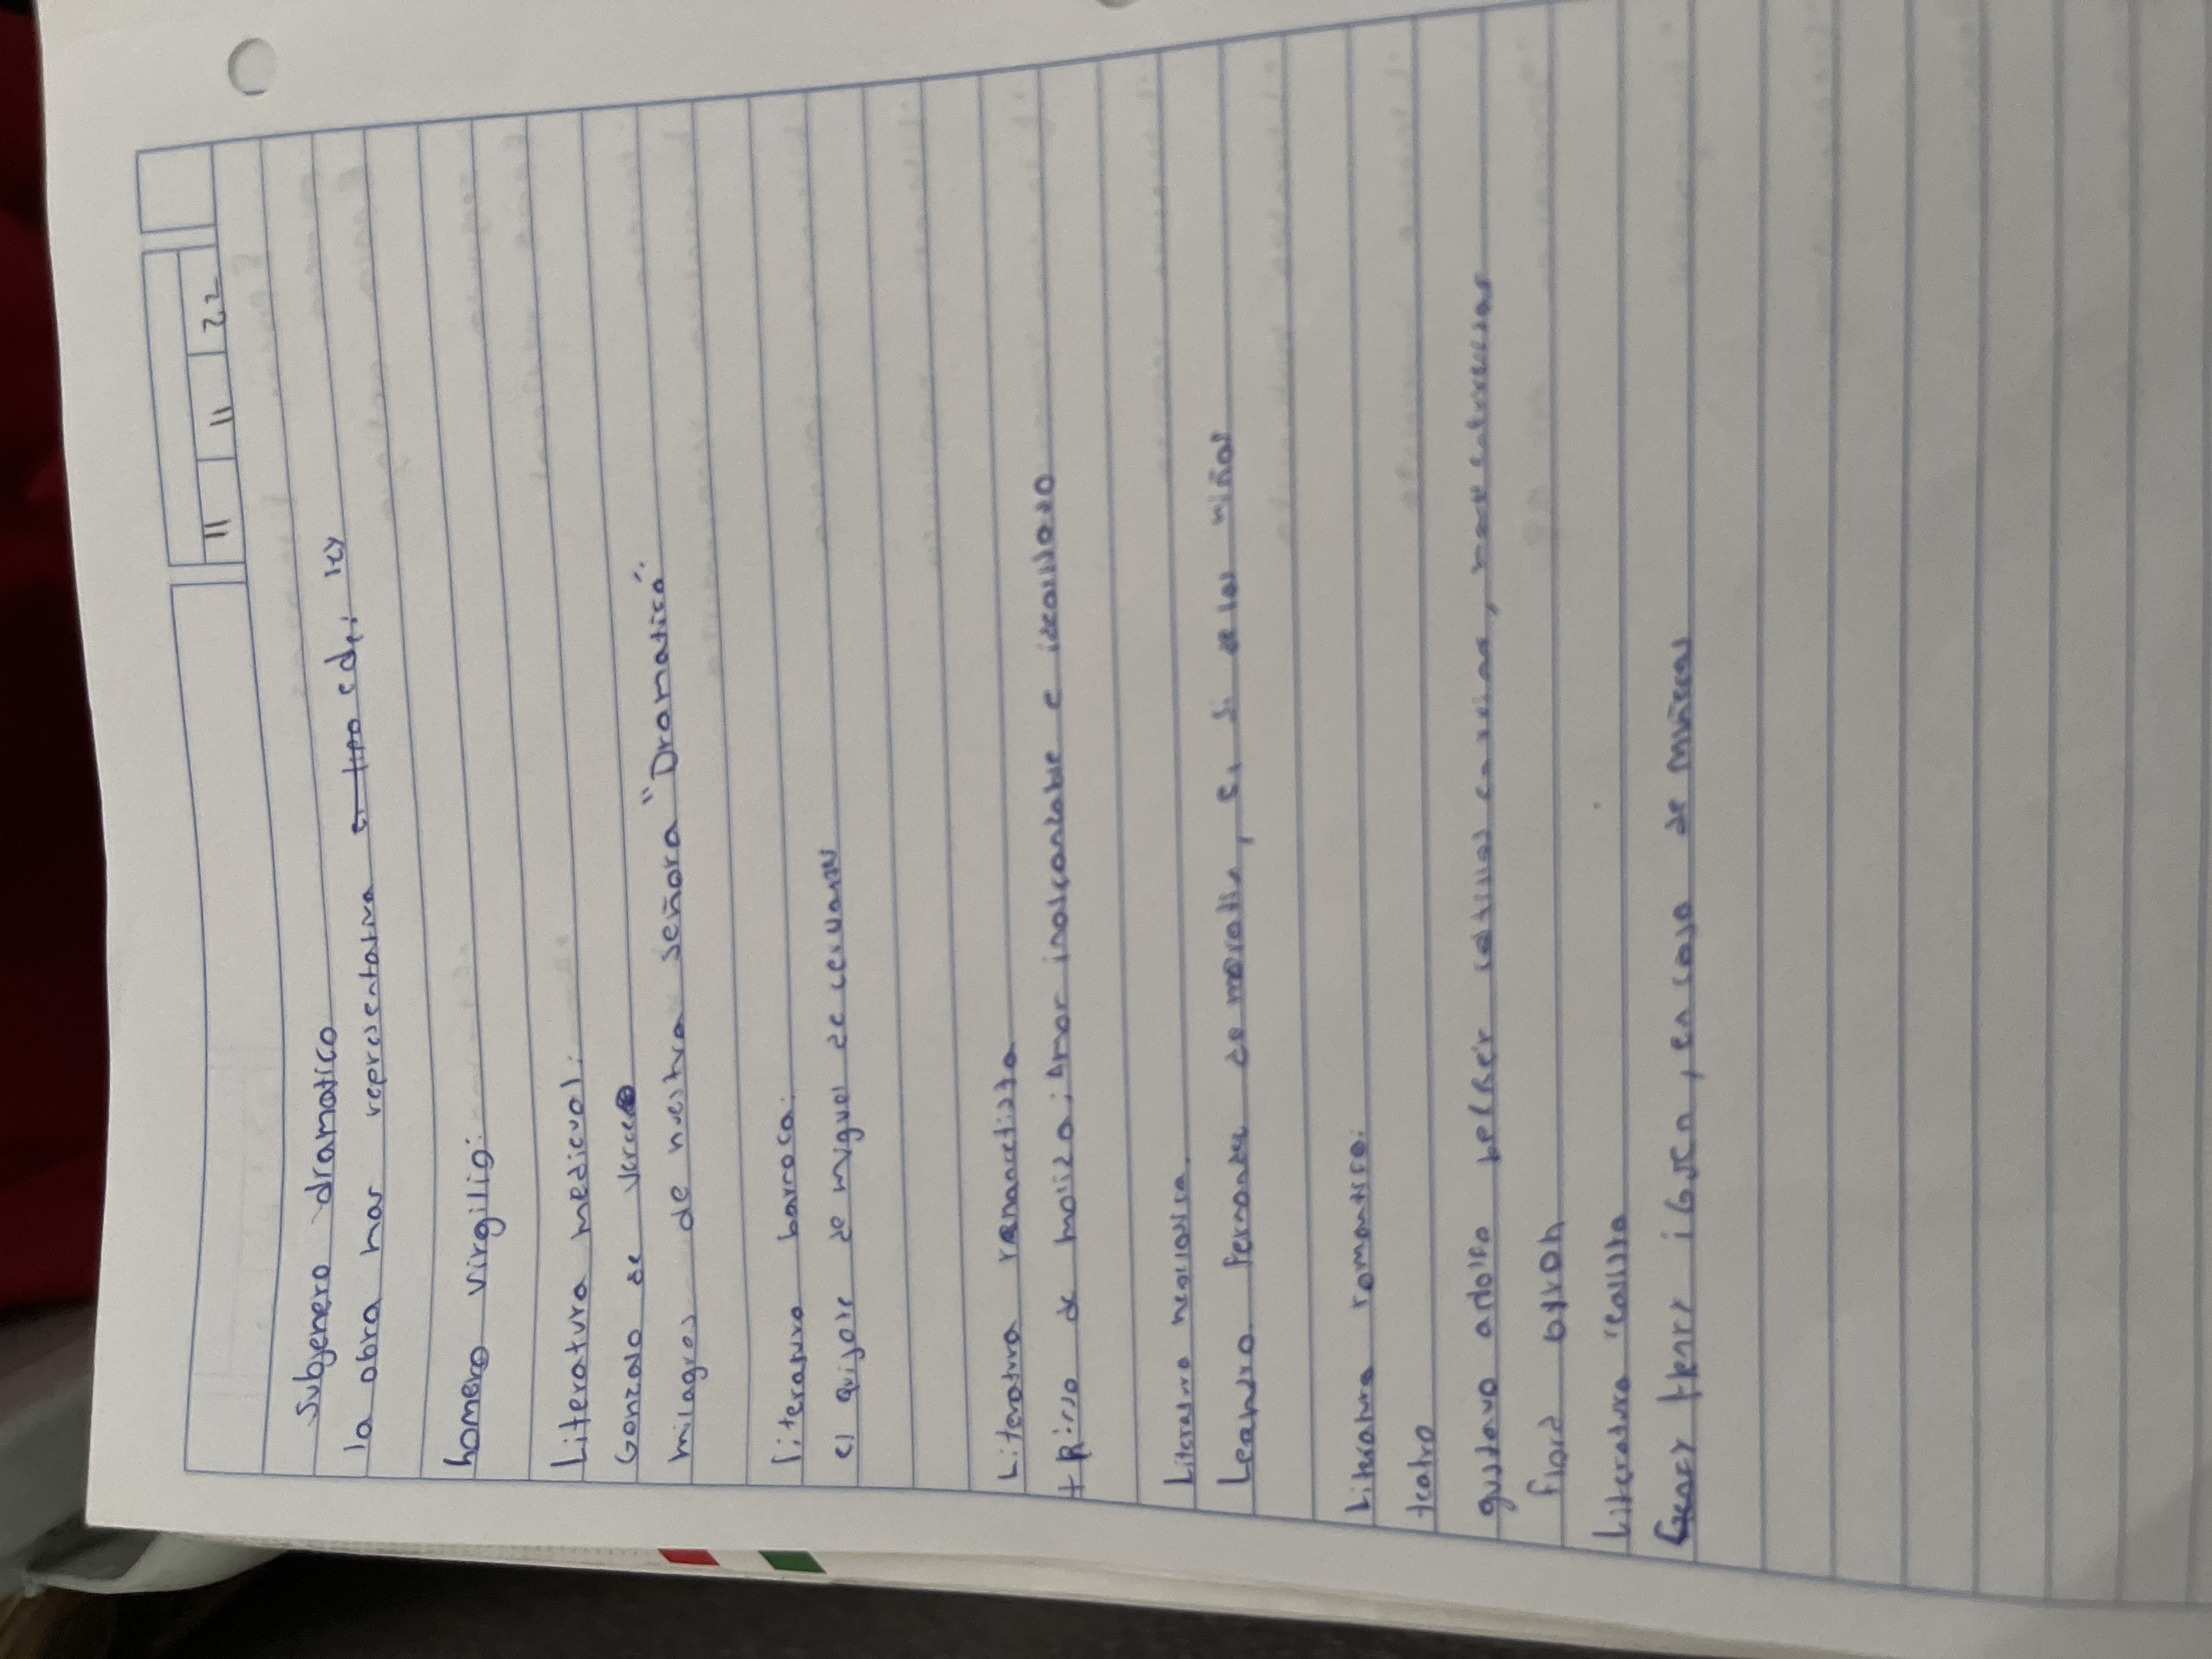 11 11 22
Subjenero dramatico
la obra mas representativa en tipo edpi rey
homero virgilio:
Literatura medieval:
Gonzalo de Verceo
milagros de nuestra señora "Dramatico"
literatura barroca:
el quijote de miguel de cervantes
Literatura renancetista
tirso de molina; Amor inalcanzable e idealizado
Literatura neoclasica.
Leandro fernandez de moratin, el si de las niñas
Literatura romantica:
teatro
gustavo adolfo
flord byron
Literatura realista
Henry ibsen, en casa de muñecas